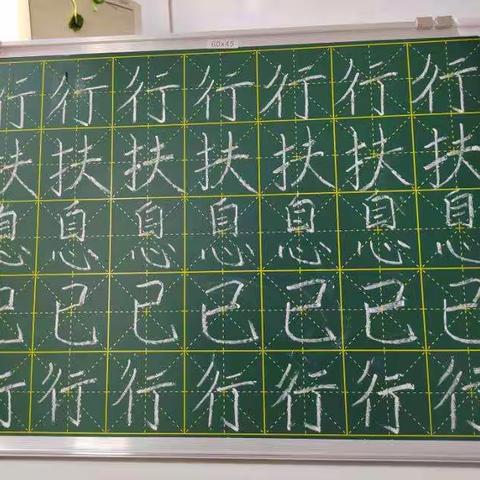 60x45
行行行行行行行
扶扶扶扶扶扶扶
息息息息息息息
已已已已已已已
行行行行行行行